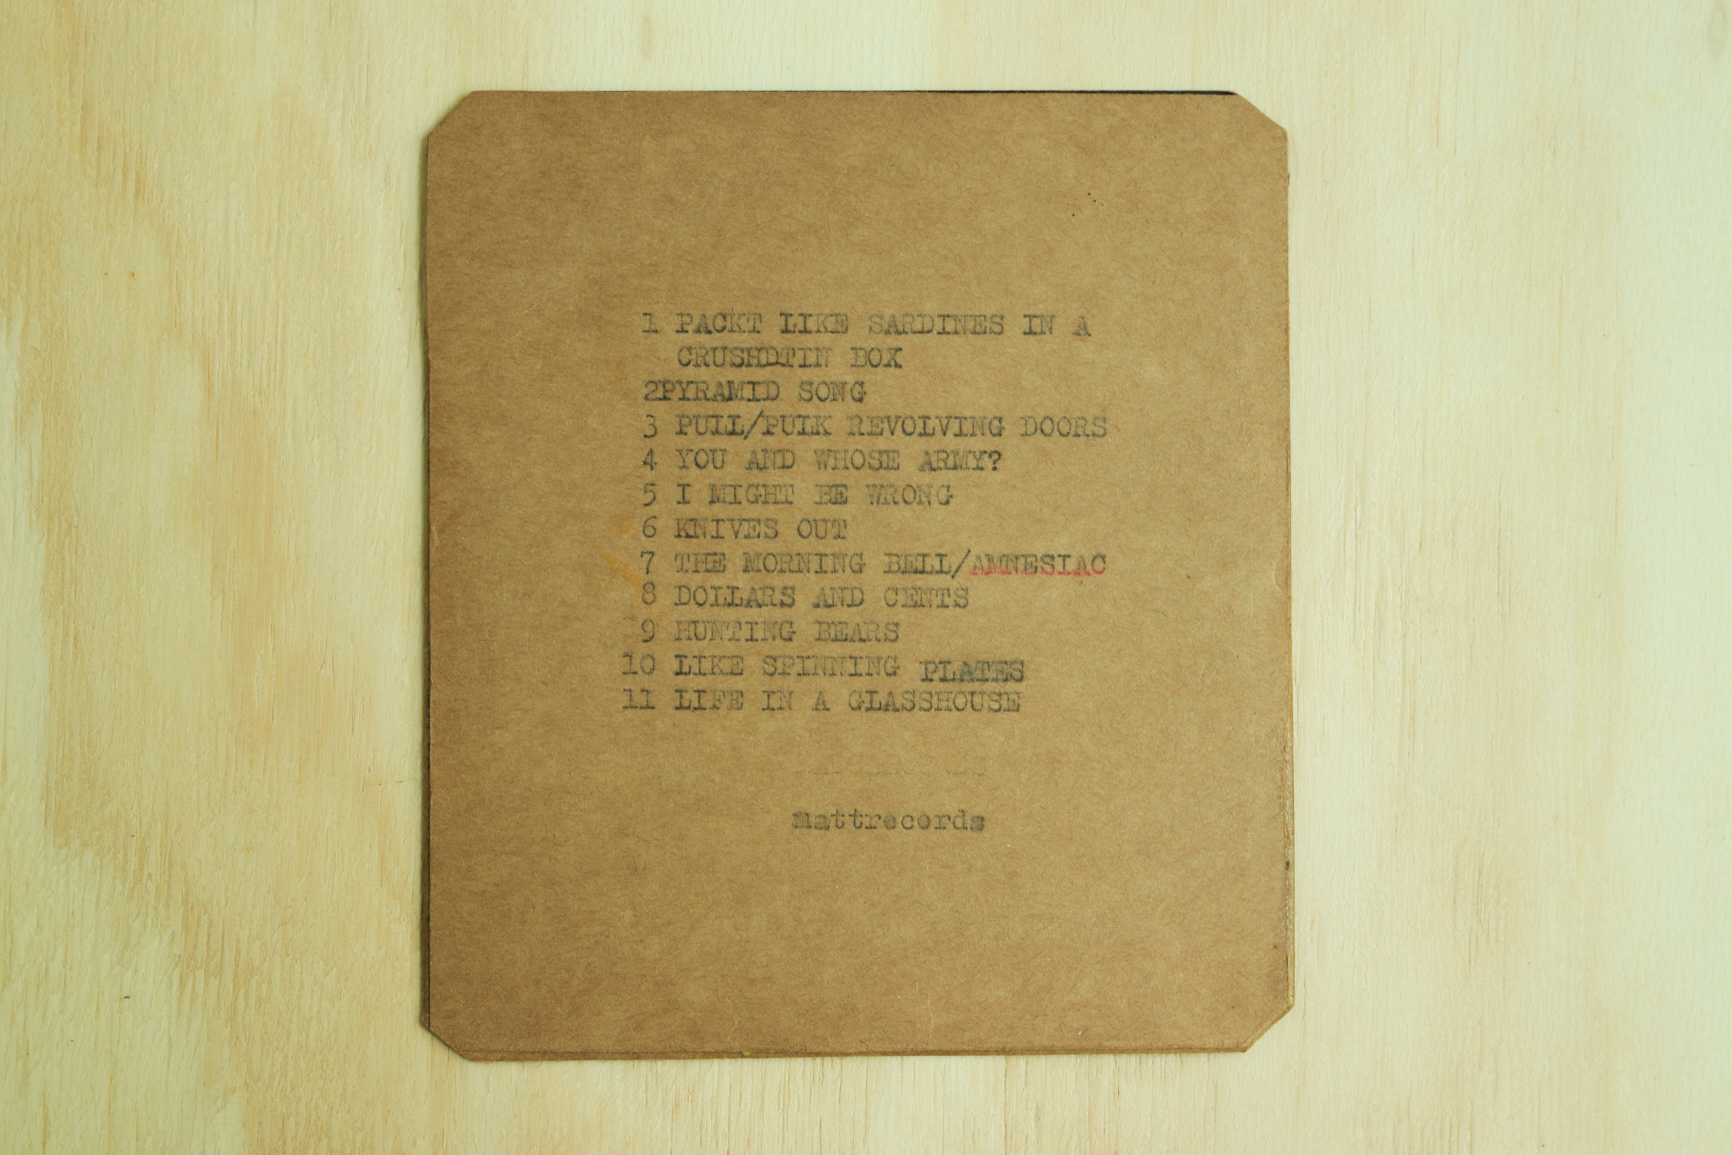 1 PACKT LIKE SARDINES IN A
CRUSHDTIN BOX
2PYRAMID SONG
3 PULL/PULK REVOLVING DOORS
4 YOU AND WHOSE ARMY?
5 I MIGHT BE WRONG
6 KNIVES OUT
7 THE MORNING BELL/AMNESIAC
8 DOLLARS AND CENTS
9 HUNTING BEARS
10 LIKE SPINNING PLATES
11 LIFE IN A GLASSHOUSE
mattrecords